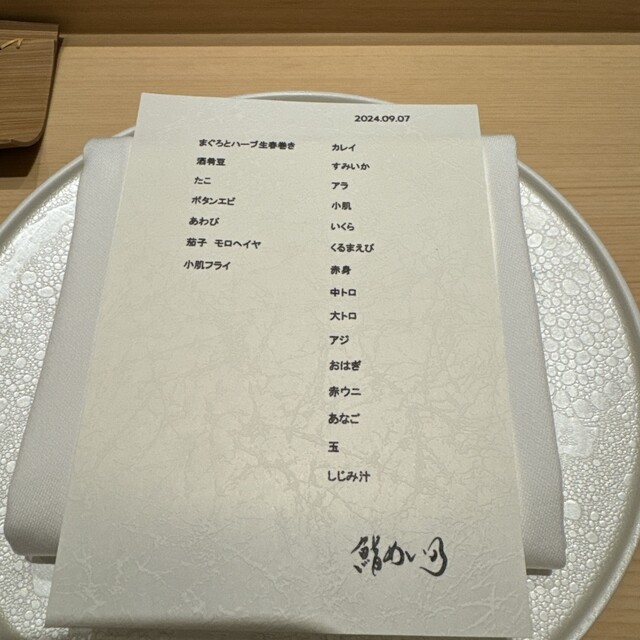 2024.09.07
まぐろとハーブ生春巻き
酒肴豆
たこ
ボタンエビ
あわび
茄子 モロヘイヤ
小肌フライ
カレイ
すみいか
アラ
小肌
いくら
くるまえび
赤身
中トロ
大トロ
アジ
おはぎ
赤ウニ
あなご
玉
しじみ汁
鮨めい乃